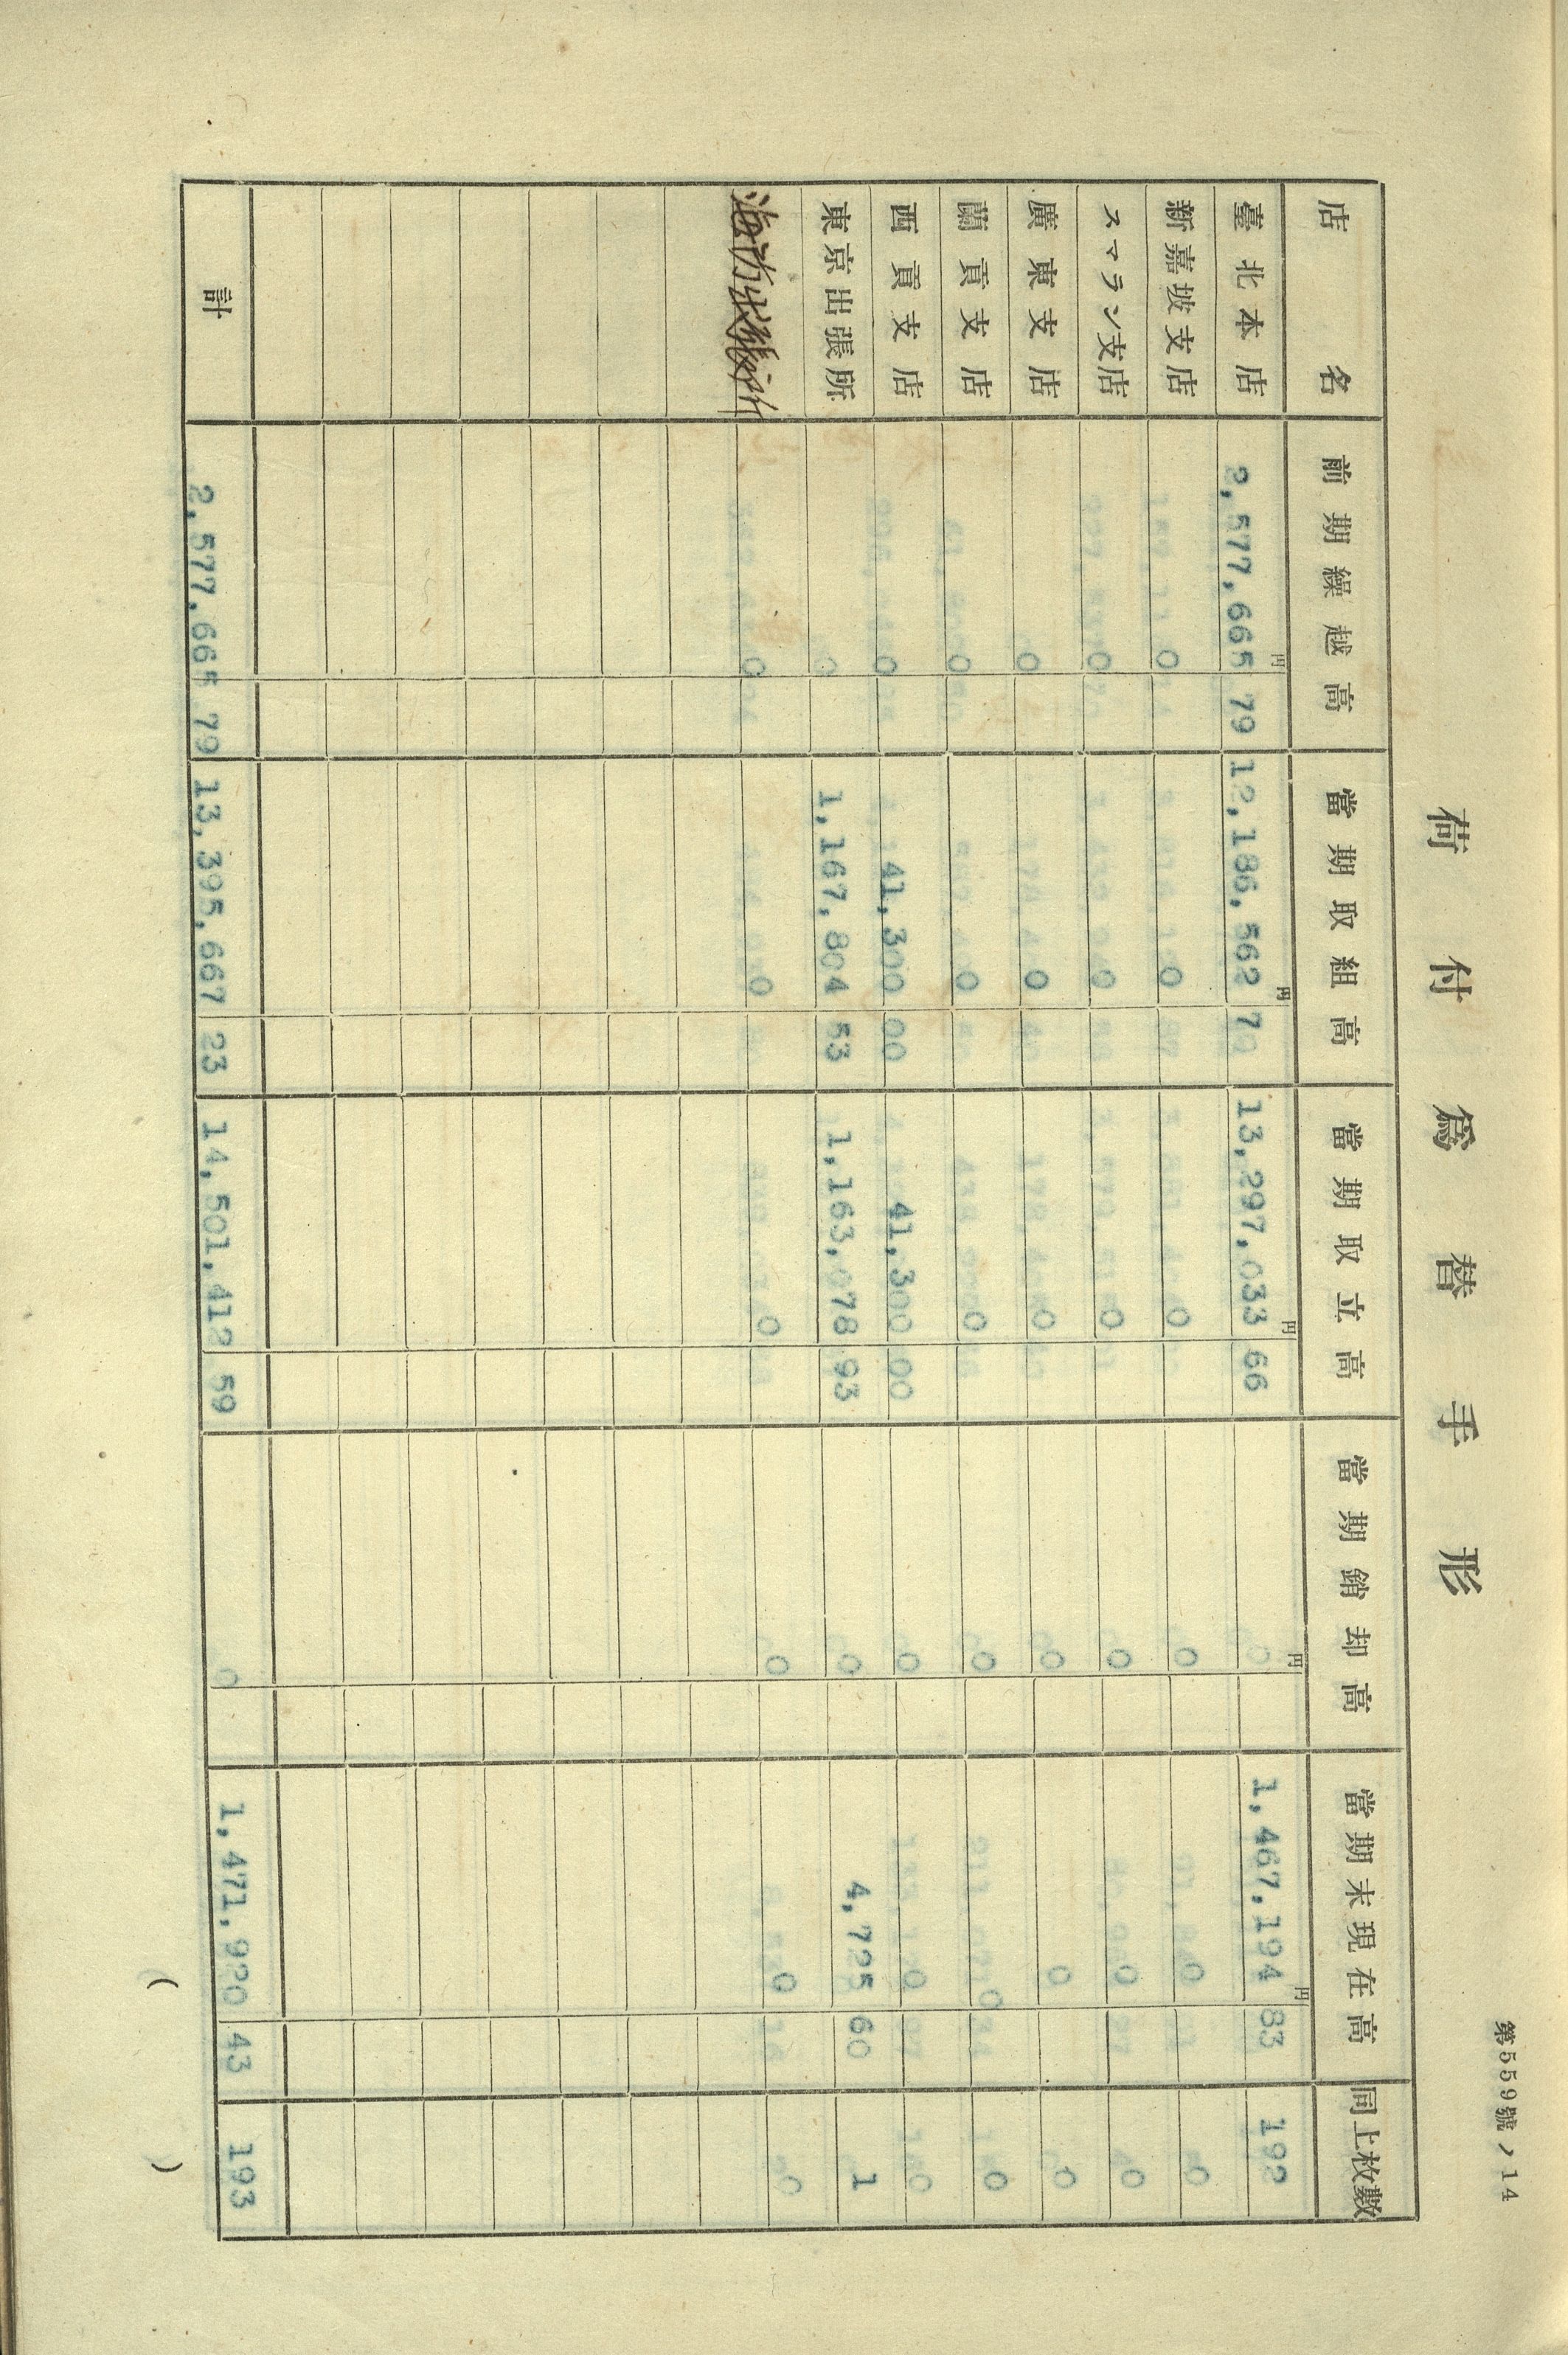 第559號ノ14
荷付爲替手形
店名 前期繰越高 當期取組高 當期取立高 當期銷却高 當期末現在高 同上枚數
円 円 円 円 円
臺北本店 2,577,665 79 12,186,562 70 13,297,033 66 0 1,467,194 83 192
新嘉坡支店 0 0 0 0 0 0
スマラン支店 0 0 0 0 0 0
廣東支店 0 0 0 0 0 0
蘭貢支店 0 0 0 0 0 0
西貢支店 0 41,300 00 41,300 00 0 0 0
東京出張所 0 1,167,804 53 1,163,078 93 0 4,725 60 1
海防出張所 0 0 0 0 0 0
計 2,577,665 79 13,395,667 23 14,501,412 59 0 1,471,920 43 193
( )